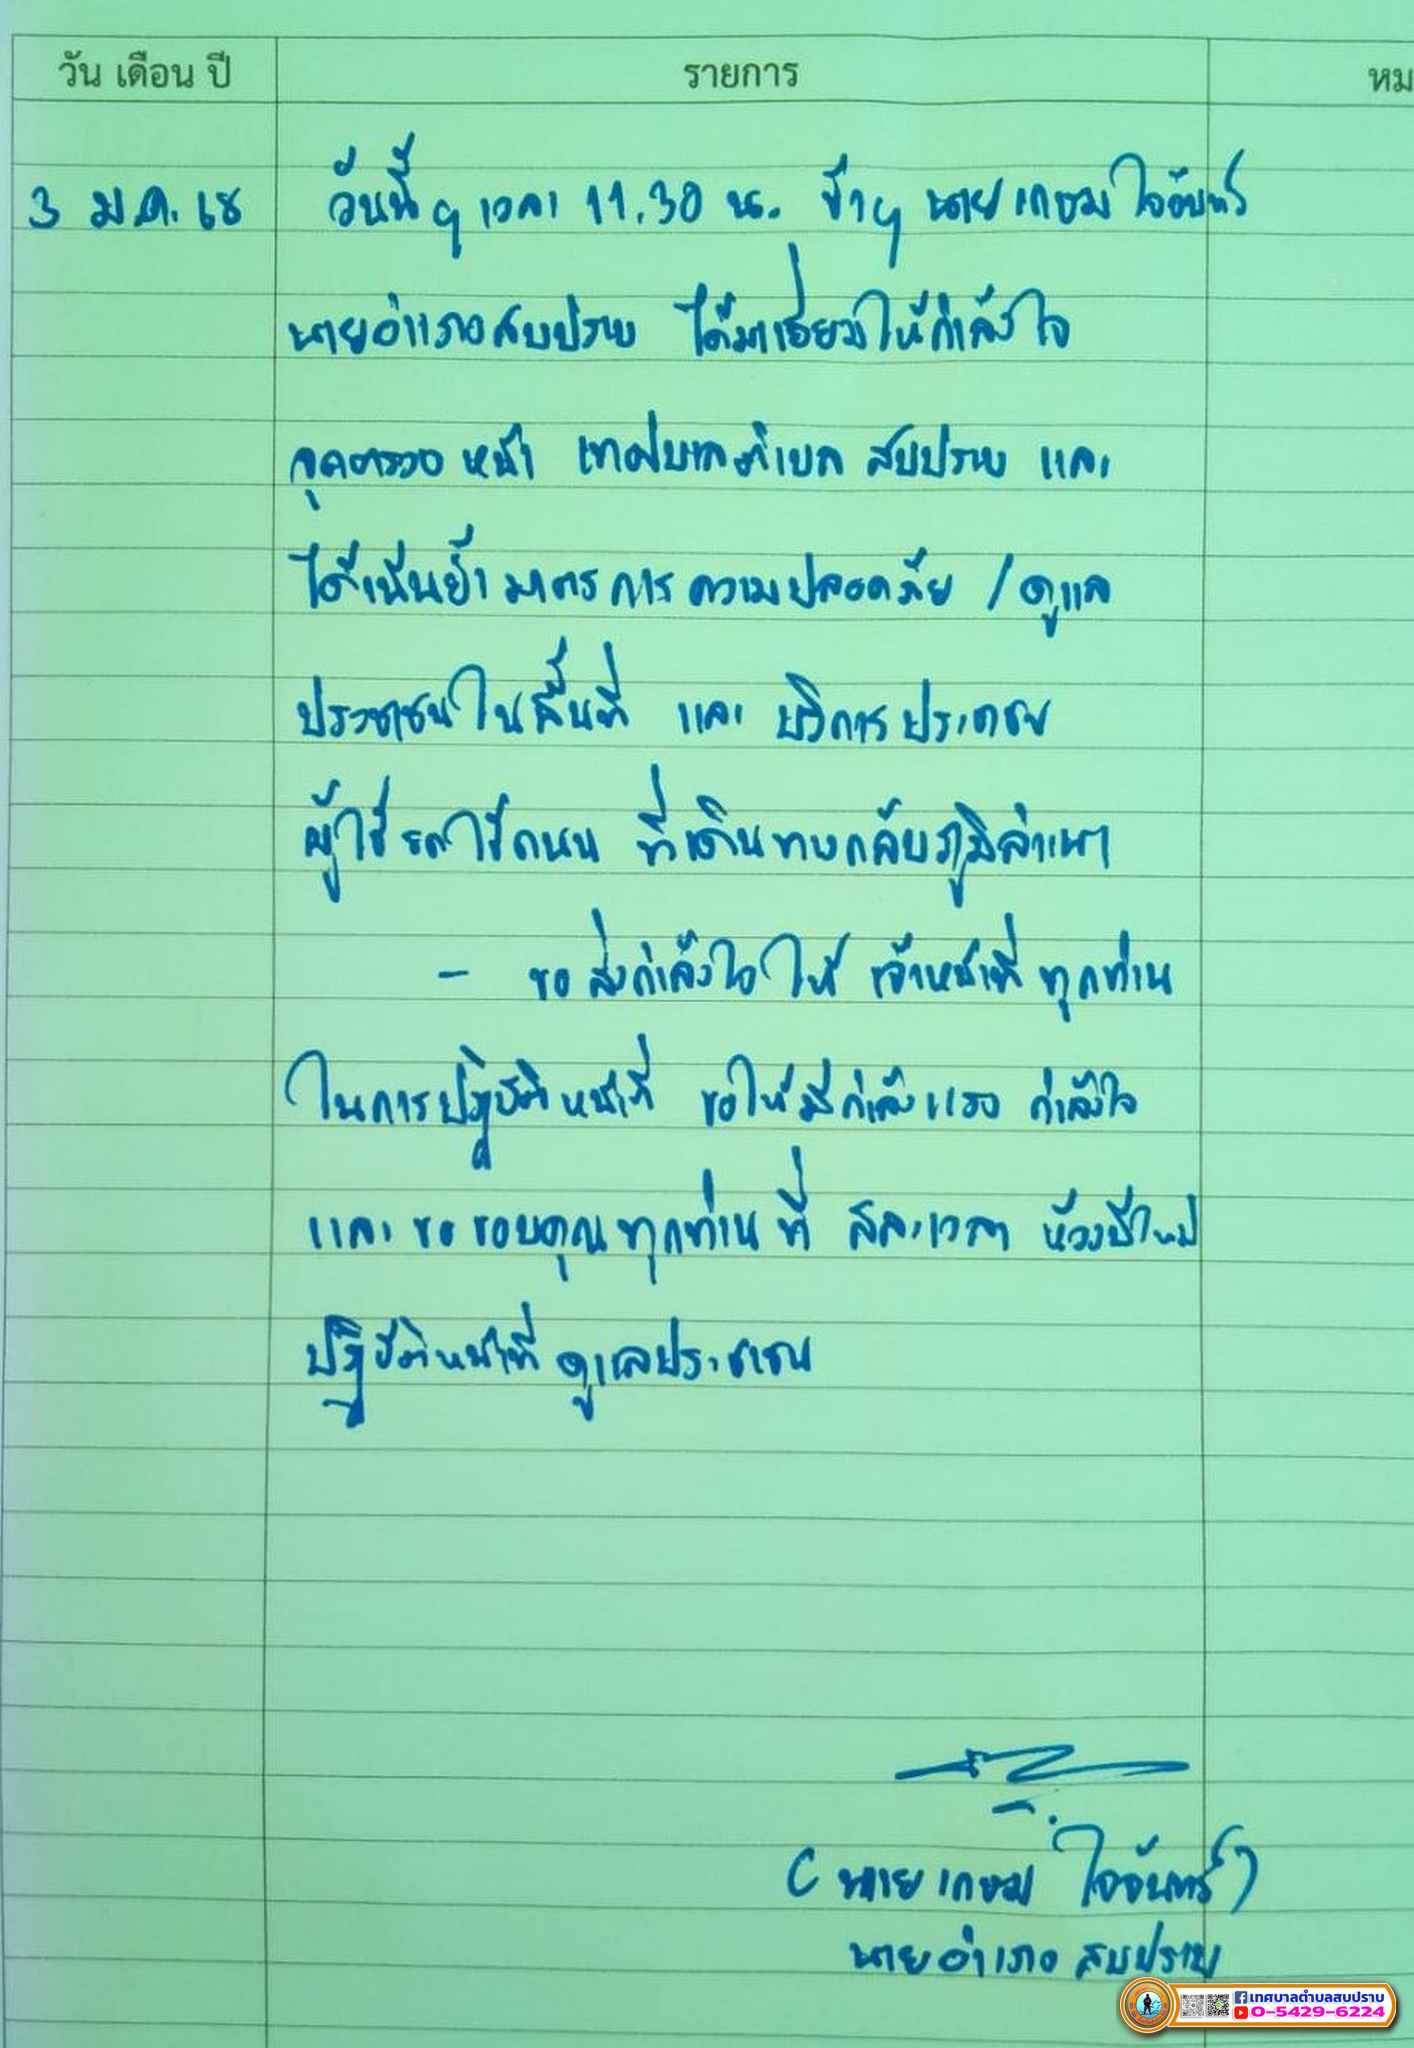 วัน เดือน ปี รายการ หม
3 ม.ค. 68 วันนี้ๆ เวลา 11.30 น. ข้าฯ นายเกษม ใจจันทร์
นายอำเภอสบปราบ ได้มาเยี่ยมให้กำลังใจ
จุดตรวจ หน้า เทศบาลตำบล สบปราบ และ
ได้เน้นย้ำ มาตรการ ความปลอดภัย / ดูแล
ประชาชนในพื้นที่ และ บริการประชาชน
ผู้ใช้รถใช้ถนน ที่เดินทางกลับภูมิลำเนา
- ขอส่งกำลังใจให้ เจ้าหน้าที่ ทุกท่าน
ในการปฏิบัติหน้าที่ ขอให้มีกำลังแรง กำลังใจ
และขอขอบคุณทุกท่านที่ สละเวลา ห้วงปีใหม่
ปฏิบัติหน้าที่ ดูแลประชาชน
(นายเกษม ใจจันทร์)
นายอำเภอ สบปราบ
เทศบาลตำบลสบปราบ
0-5429-6224